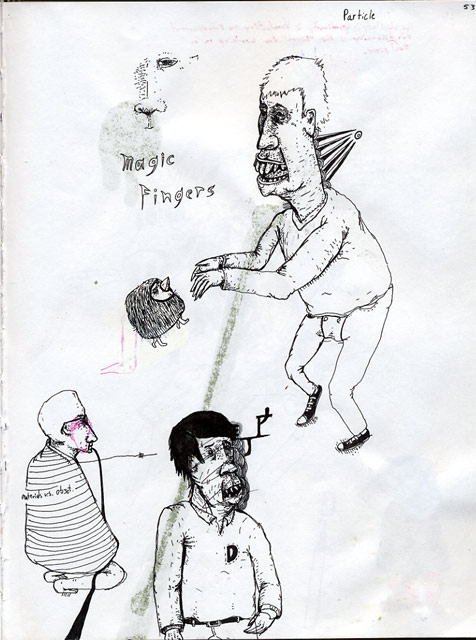 53
Particle
magic
fingers
materials vs. object.
D